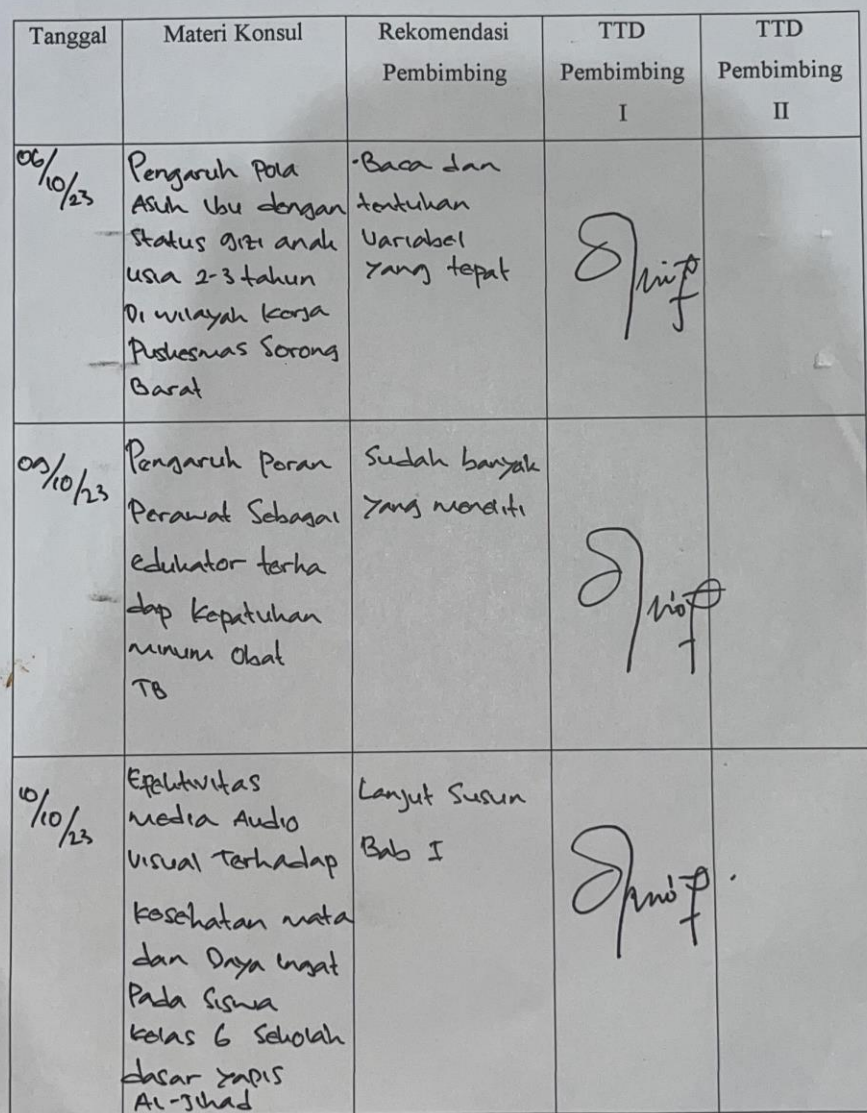 Tanggal
Materi Konsul
Rekomendasi
Pembimbing
TTD
Pembimbing
I
TTD
Pembimbing
II
06/10/23
Pengaruh Pola
Asuh Ibu dengan
Status gizi anak
usia 2-3 tahun
Di wilayah kerja
Puskesmas Sorong
Barat
•Baca dan
tentukan
Variabel
yang tepat
09/10/23
Pengaruh Peran
Perawat Sebagai
edukator terha
dap Kepatuhan
minum Obat
TB
Sudah banyak
yang meneliti
10/10/23
Efektivitas
media Audio
visual Terhadap
kesehatan mata
dan Daya ingat
Pada Siswa
kelas 6 Sekolah
dasar yapis
Al-Jihad
Lanjut Susun
Bab I